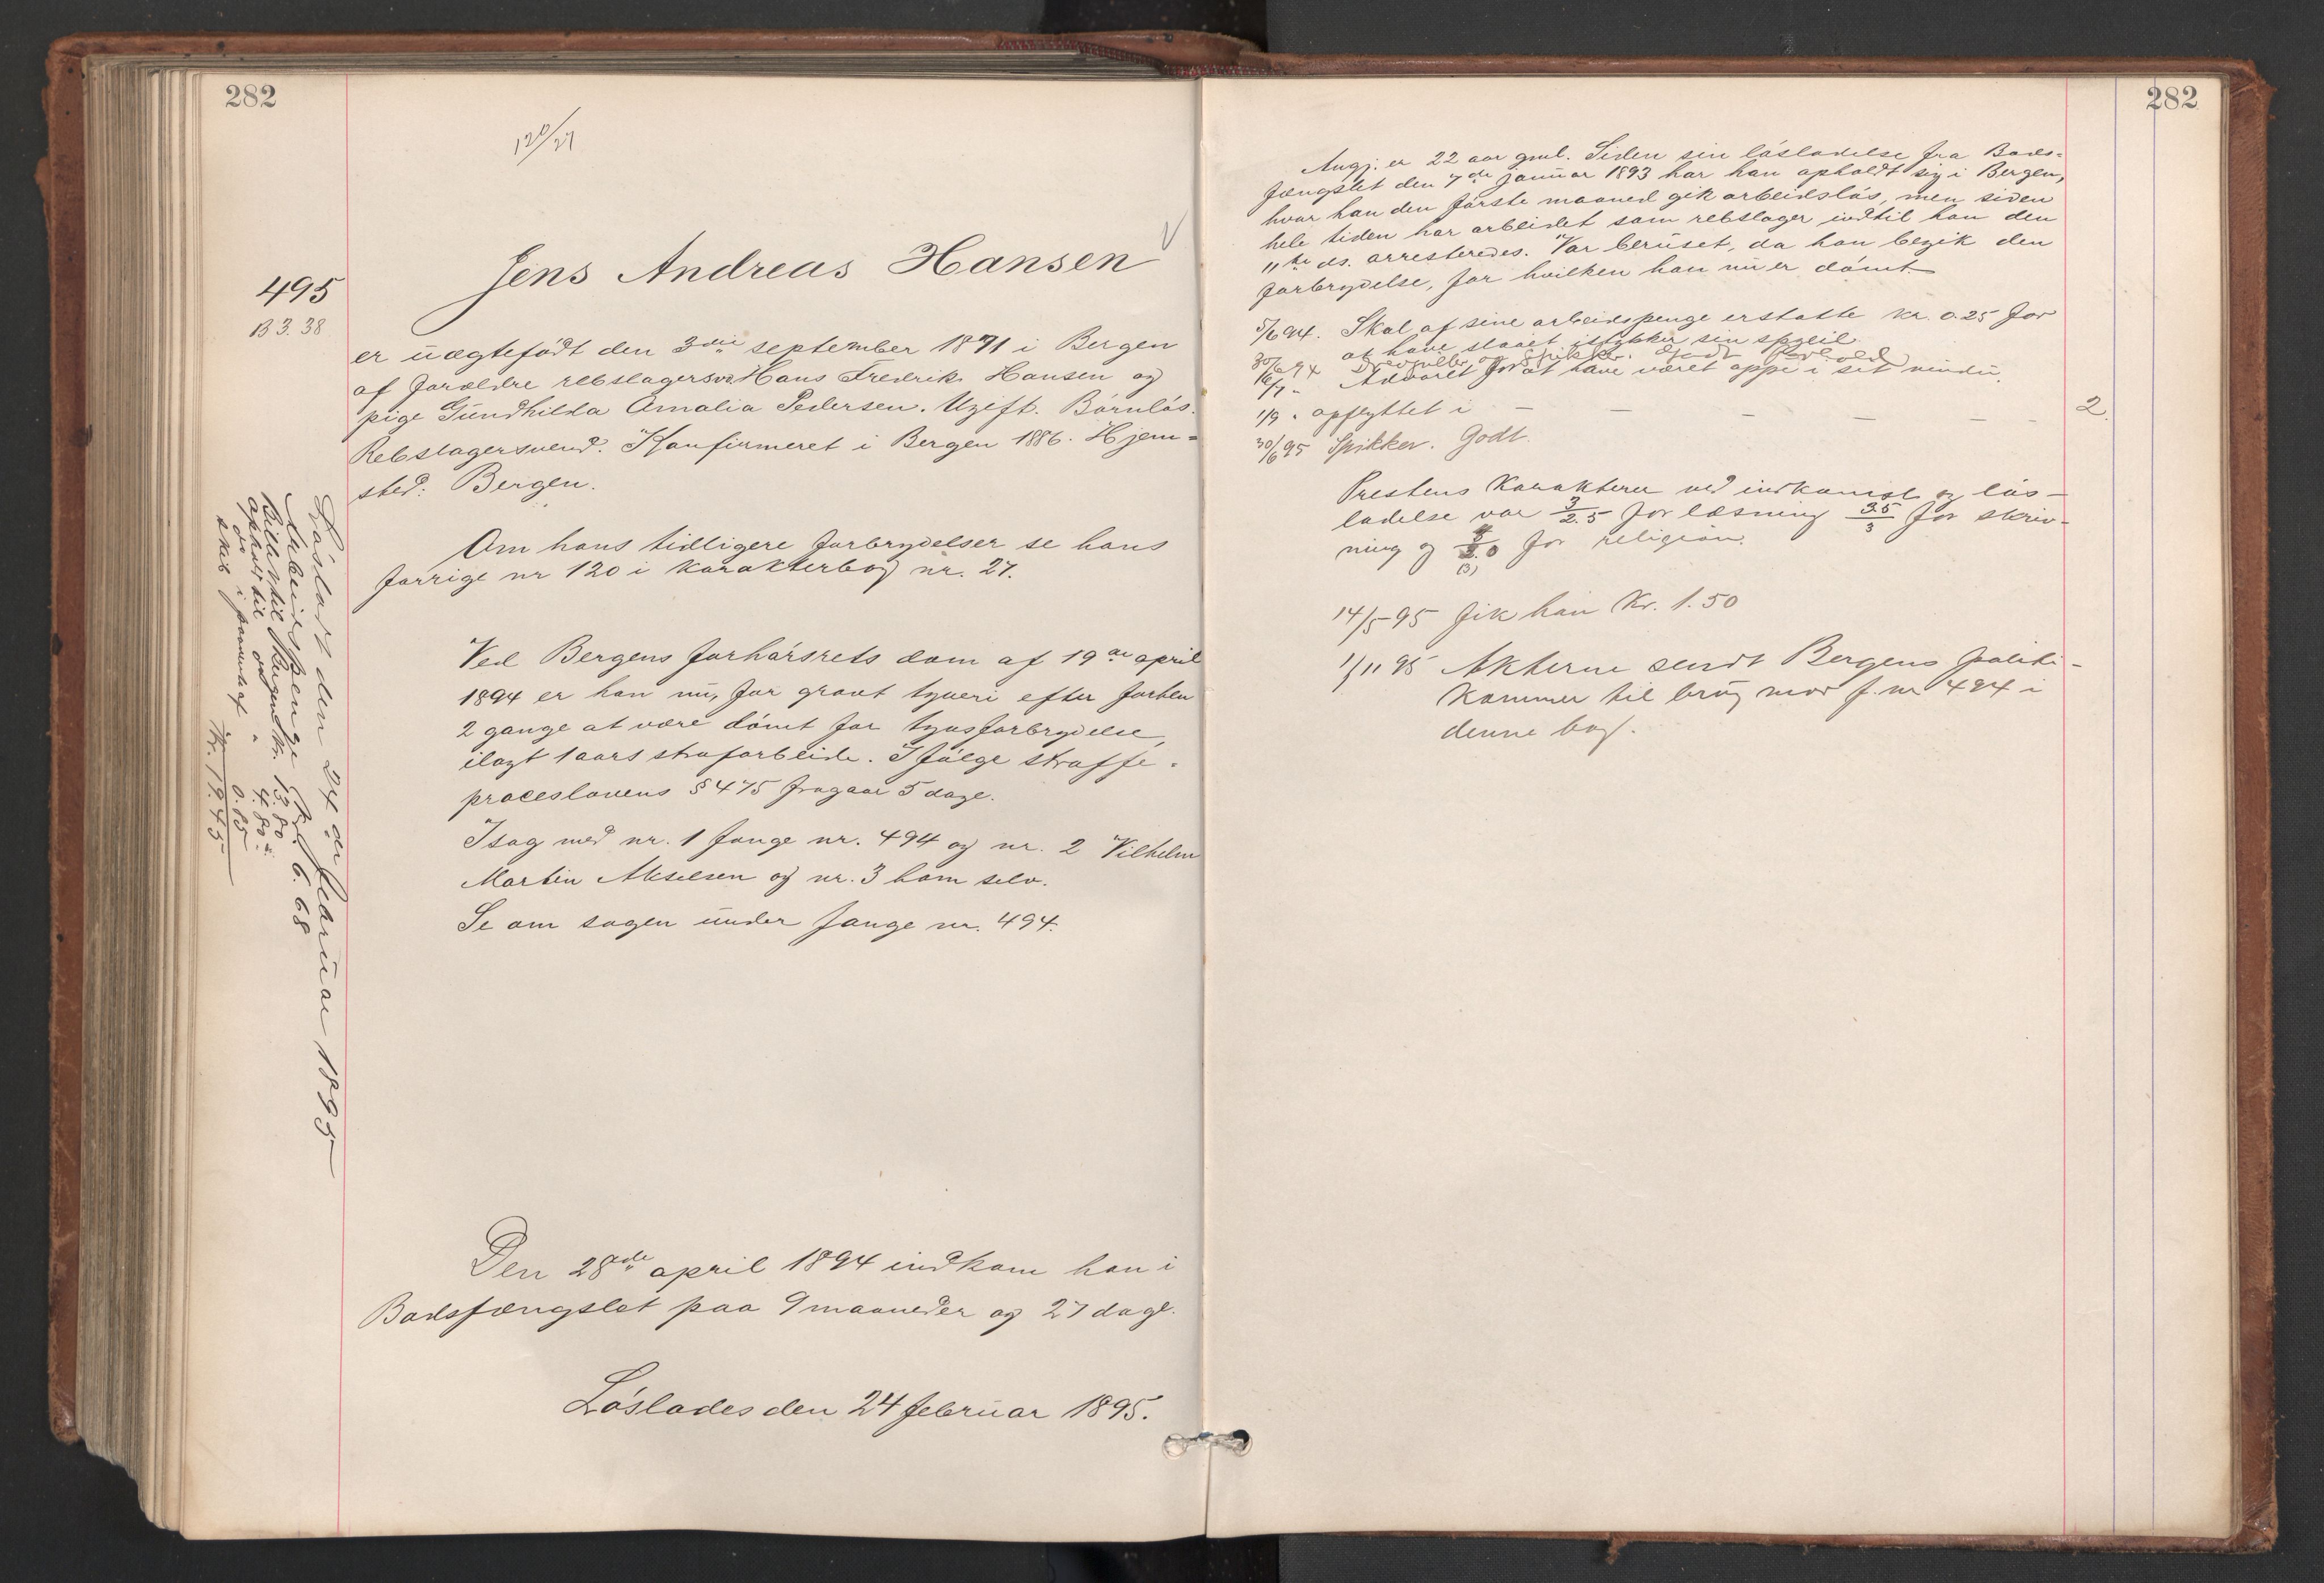 282
120/27
Jens Andreas Hansen
495
B 3. 38
er uægtefødt den 3die september 1871 i Bergen
af forældre rebslagersvd Hans Fredrik Hansen og
pige Gundhilda Amalia Pedersen. Ugift. Børnløs.
Rebslagersvend. Konfirmeret i Bergen 1886. Hjem=
sted: Bergen.
Om hans tidligere forbrydelser se hans
forrige nr 120 i karakterbog nr. 27.
Ved Bergens forhørsrets dom af 19de april
1894 er han nu, for grovt tyveri efter forhen
2 gange at være dømt for tyvsforbrydelse,
ilagt 1 aars strafarbeide. I følge straffe=
proceslovens § 475 fragaar 5 dage.
I sag med nr. 1 fange nr. 494 og nr. 2 Vilhelm
Martin Akselsen og nr. 3 ham selv.
Se om sagen under fange nr. 494.
Den 28de april 1894 indkom han i
Bodsfængslet paa 9 maaneder og 27 dage.
Løslades den 24 februar 1895.
Løsladt den 24de februar 1895
Arbeidspenge Kr. 6.68
Billet til Bergen Kr. 13.80
ophold til " 4.80
skab i 0.85
Kr. 19.45
282
Angj. er 22 aar gml. Siden sin løsladelse fra Bods=
fængslet den 7de januar 1893 har han opholdt sig i Bergen,
hvor han den første maaned gik arbeidsløs, men siden
hele tiden har arbeidet som rebslager indtil han den
11te ds. arresteredes. Var beruset, da han begik den
forbrydelse, for hvilken han nu er dømt.
5/6 94. Skal af sine arbeidspenge erstatte kr. 0.25 for
at have slaaet istykker sin speil.
30/6 94 Spikker. Godt
16/7 - Advaret for at have været oppe i sit vindu.
1/9 - opflyttet i — — — — — 2.
30/6 95 Spikker. Godt.
Prestens Karakterer ved indkomst og løs-
ladelse var 3/2.5 for læsning 3.5/3 for skriv-
ning og for religion.
14/5 95 fik han Kr. 1.50
1/11 95 Akterne sendt Bergens politi-
kammer til brug mod f. nr 494 i
denne bog.